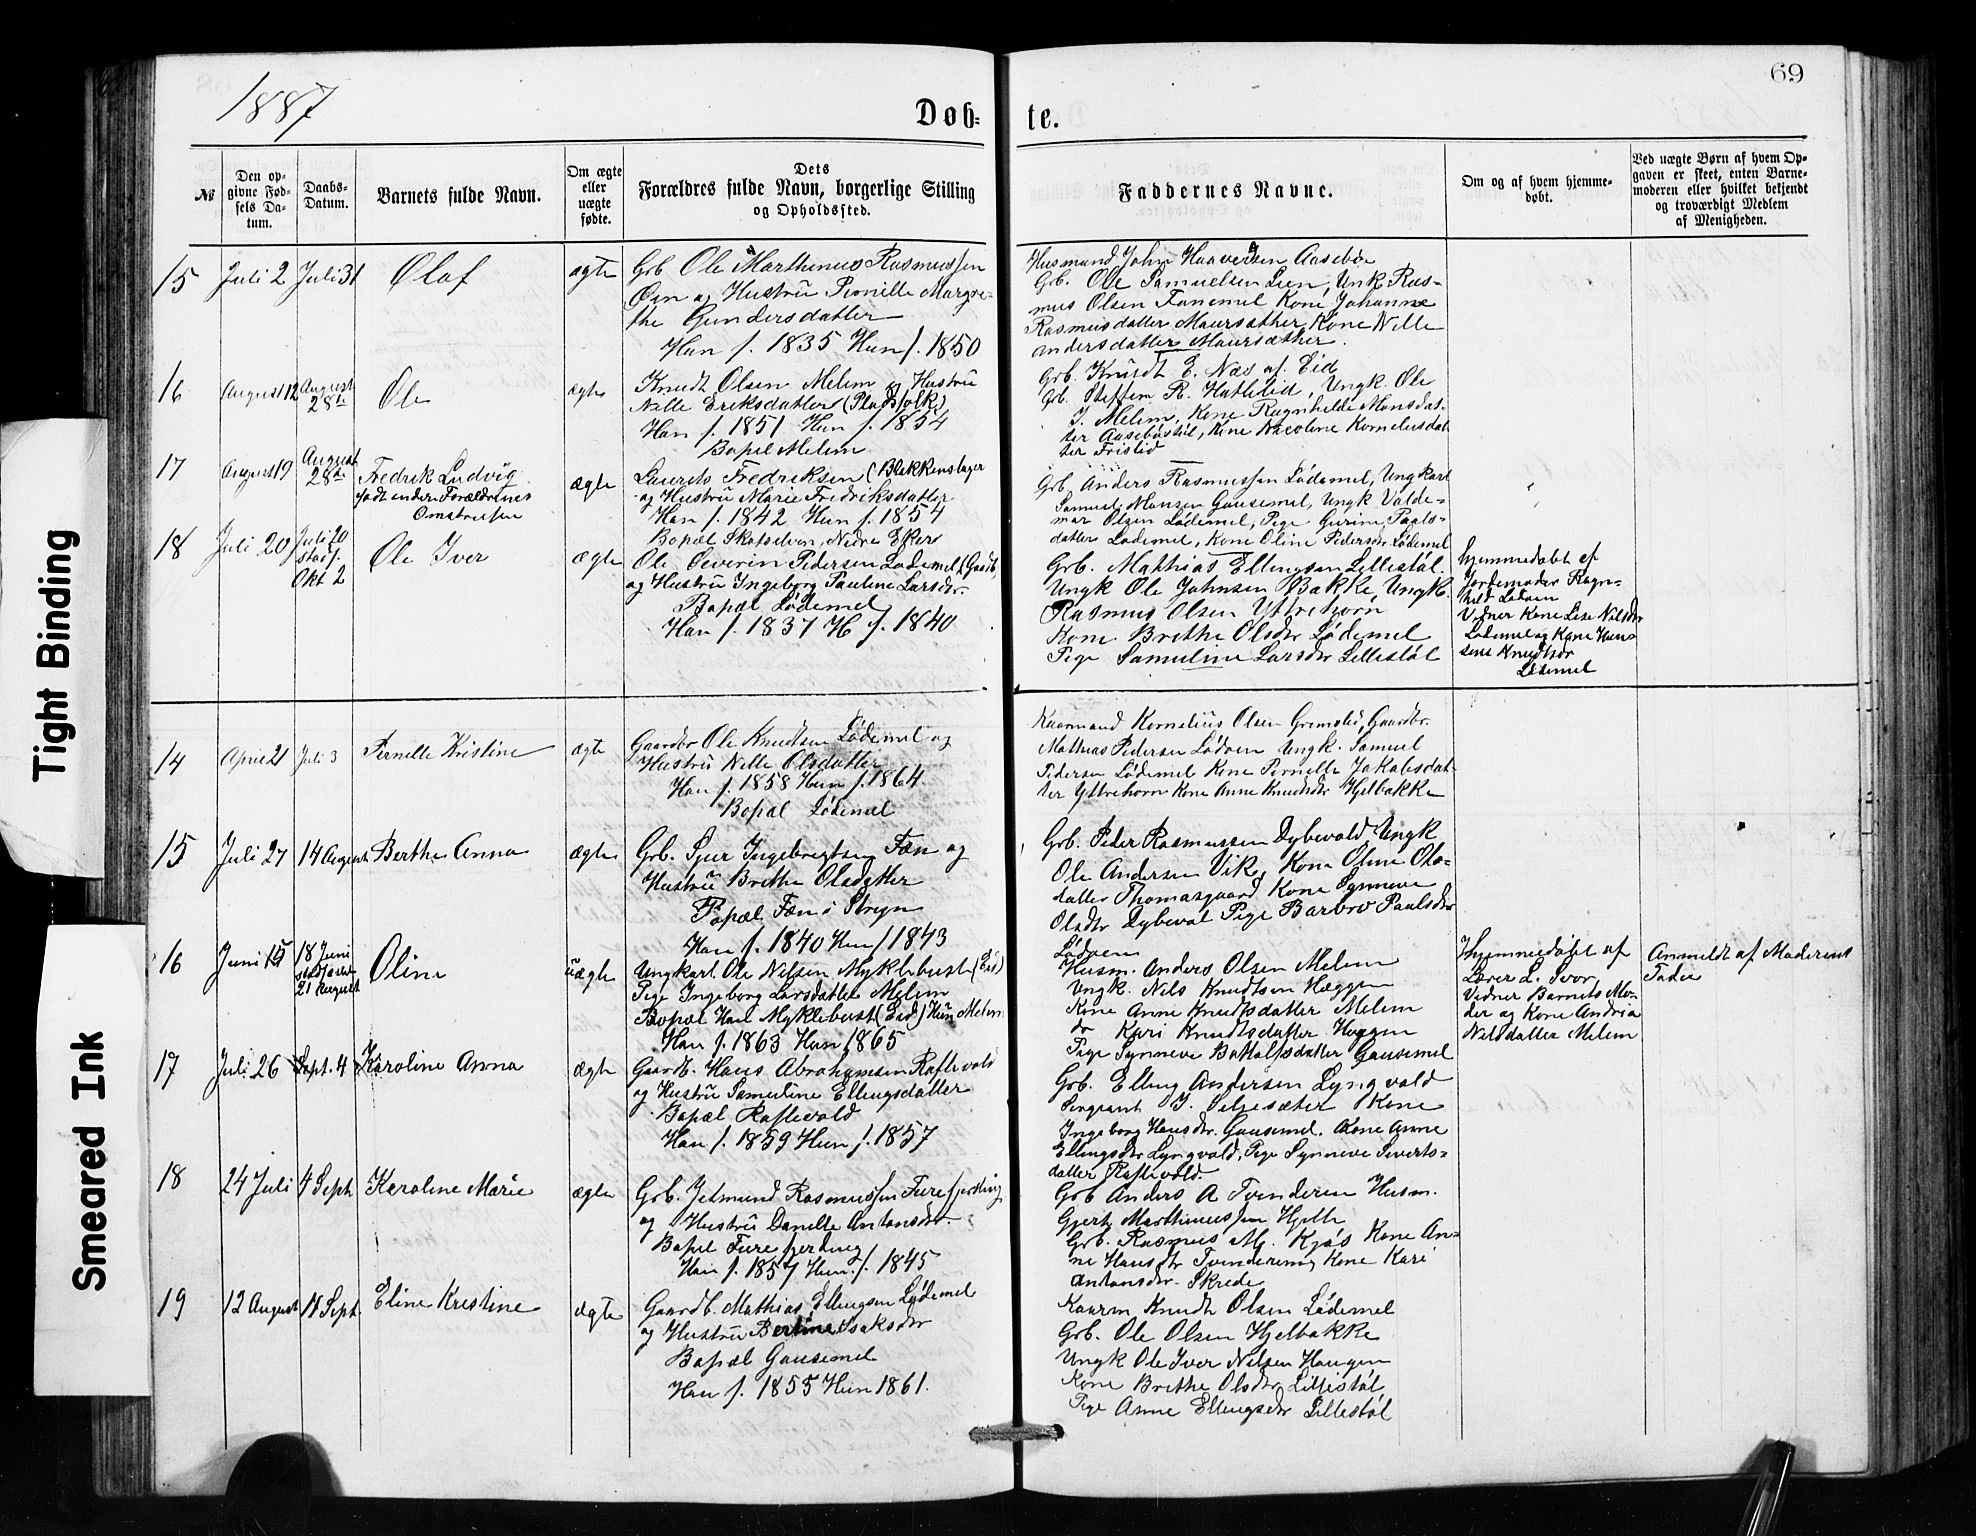 69
1887
Døb-
te.
№
Den op-
givne Fød-
sels Da-
tum.
Daabs-
Datum.
Barnets fulde Navn.
Om ægte
eller
uægte
fødte.
Dets
Forældres fulde Navn, borgerlige Stilling
og Opholdssted.
Faddernes Navne.
Om og af hvem hjemme-
døbt.
Ved uægte Børn af hvem Op-
gaven er skeet, enten Barne-
moderen eller hvilket bekjendt
og troværdigt Medlem
af Menigheden.
15 Juli 2 Juli 31 Olaf ægte
Grb Ole Marthinus Rasmussen
Øen og Hustru Pernille Margre-
the Gundersdatter
Han f. 1835 Hun f. 1850
Husmand John Haaversen Aasebøe
Grb. Ole Samuelsen Lien, Unk Ras-
mus Olsen Fanemel Kone Johanne
Rasmusdatter Maursæther, Kone Nille
Andersdatter Maursæther.
16 August 12 August
28de
Ole ægte
Knudt Olsen Melem og Hustru
Nille Eriksdatter (Pladsfolk)
Han f. 1851 Hun f. 1854
Bopæl Melem
Grb. Knudt E. Næs af Eid
Grb. Steffen R. Hathlid, Ungk. Ole
J. Melem, Kone Ragnhilde Monsdat-
ter Aasebøstøl, Kone Nicoline Kornelusdat
ter Fristid
17 August 19 August
28de
Fredrik Ludvig
født under Forældrenes
Omstreifen
ægte
Laurits Fredriksen (Blekkenslager
og Hustru Marie Fredriksdatter
Han f. 1842 Hun f. 1854
Bopæl Skotselven, Nedre Eker
Grb Anders Rasmussen Lødemel, Ungkarl
Samuel Monsen Gausemel, Ungk Valde-
mar Olsen Lødemel, Pige Gurine Paals-
datter Lødemel, Kone Oline Pedersdr Lødemel
18 Juli 20 Juli 20
stadf.
Okt 2
Ole Iver ægte
Ole Severin Pedersen Lødemel (Gaardb,
og Hustru Ingeborg Pauline Larsdr.
Bopæl Lødemel
Han f. 1837 H f. 1840
Grb. Mathias Ellingsen Lillestøl.
Ungk Ole Johnsen Bakke, Ungk.
Rasmus Olsen Yttrehorn
Kone Brithe Olsdr Lødemel
Pige Samuline Larsdr Lillestøl
Hjemmedøbt af
Jordemoder Ragn-
hild Lødøen
Vidner Kone Lise Nilsdr
Lødemel og Kone Han-
sine Knudtsdr
Lødemel
14 April 21 Juli 3 Pernille Kristine ægte
Gaardbr Ole Knudtsen Lødemel og
Hustru Nille Olsdatter
Han f. 1858 Hun f. 1864
Bopæl Lødemel
Kaarmand Kornelius Olsen Grimstad, Gaardbr.
Mathias Pedersen Lødøen Ungk. Samuel
Pedersen Lødemel Kone Pernille Jakobsdat-
ter Yttrehorn Kone Anne Knudtsdr Hjelbakke
15 Juli 27 14 August Berthe Anna ægte
Grb. Sjur Ingebregtsen Fæn og
Hustru Brithe Olsdatter
Bopæl Fæn i Stryn
Han f. 1840 Hun f 1843
Grb. Peder Rasmussen Dybevold Ungk
Ole Andersen Vik, Kone Oline Ols-
datter Thomasgaard Kone Synneve
Olsdtr Dybevol Pige Barbro Paulsdr
Lødøen
16 Juni 15 18 Juni
stadfæstet
21 August
Oline uægte
Ungkarl Ole Nilsen Myklebust (Eid)
Pige Ingeborg Larsdatter Melem
Bopæl Han Myklebust (Eid) Hun Melem
Han f. 1863 Hun 1865
Husm. Anders Olsen Melem
Ungk. Nils Knudtsen Hæggen
Kone Anne Knudtsdatter Melem
do Kari Knudtsdatter Heggen
Pige Synneve Botholfsdatter Gausemel
Hjemmedøbt af
Lærer L. Svor
Vidner Barnets Mo-
der og Kone Andria
Nilsdatter Melem
Anmeldt af Moderens
Fader
17 Juli 26 Sept. 4 Karoline Anna ægte
Gaardb. Hans Abrahamsen Raftevold
og Hustru Samueline Ellingsdatter
Bopæl Raftevold
Han f. 1859 Hun f. 1857
Grb. Elling Andersen Lyngvold
Sergeant J. Seljesæter Kone
Ingeborg Hansdr. Gausemel. Kone Anne
Ellingsdr Lyngvold, Pige Synneve Siverts-
datter Raftevold.
18 24 Juli 4 Sept Karoline Marie ægte
Grb. Jetmund Rasmussen Furefjerding
og Hustru Danille Antonsdr.
Bopel Furefjerding
Han f. 1857 Hun f. 1845
Grb Anders A Tvinderein Husm.
Gjert Marthinussen Hjelle
Grb. Rasmus M. Kjøs Kone An-
ne Hansdtr Tvindereim, Kone Kari
Antonsdr. Skrede
19 12 August 11 Sept. Eline Kristine ægte
Gaardb. Mathias Ellingsen Lødemel
og Hustru Bertine Isaksdr
Bopæl Gausemel
Han f. 1855 Hun 1861.
Kaarm Knudt Olsen Lødemel
Grb. Ole Olsen Hjelbakke
Ungk Ole Iver Nilsen Haugen
Kone Brithe Olsdr Lillestøl
Pige Anne Ellingsdr Lillestøl
Tight Binding
Smeared Ink